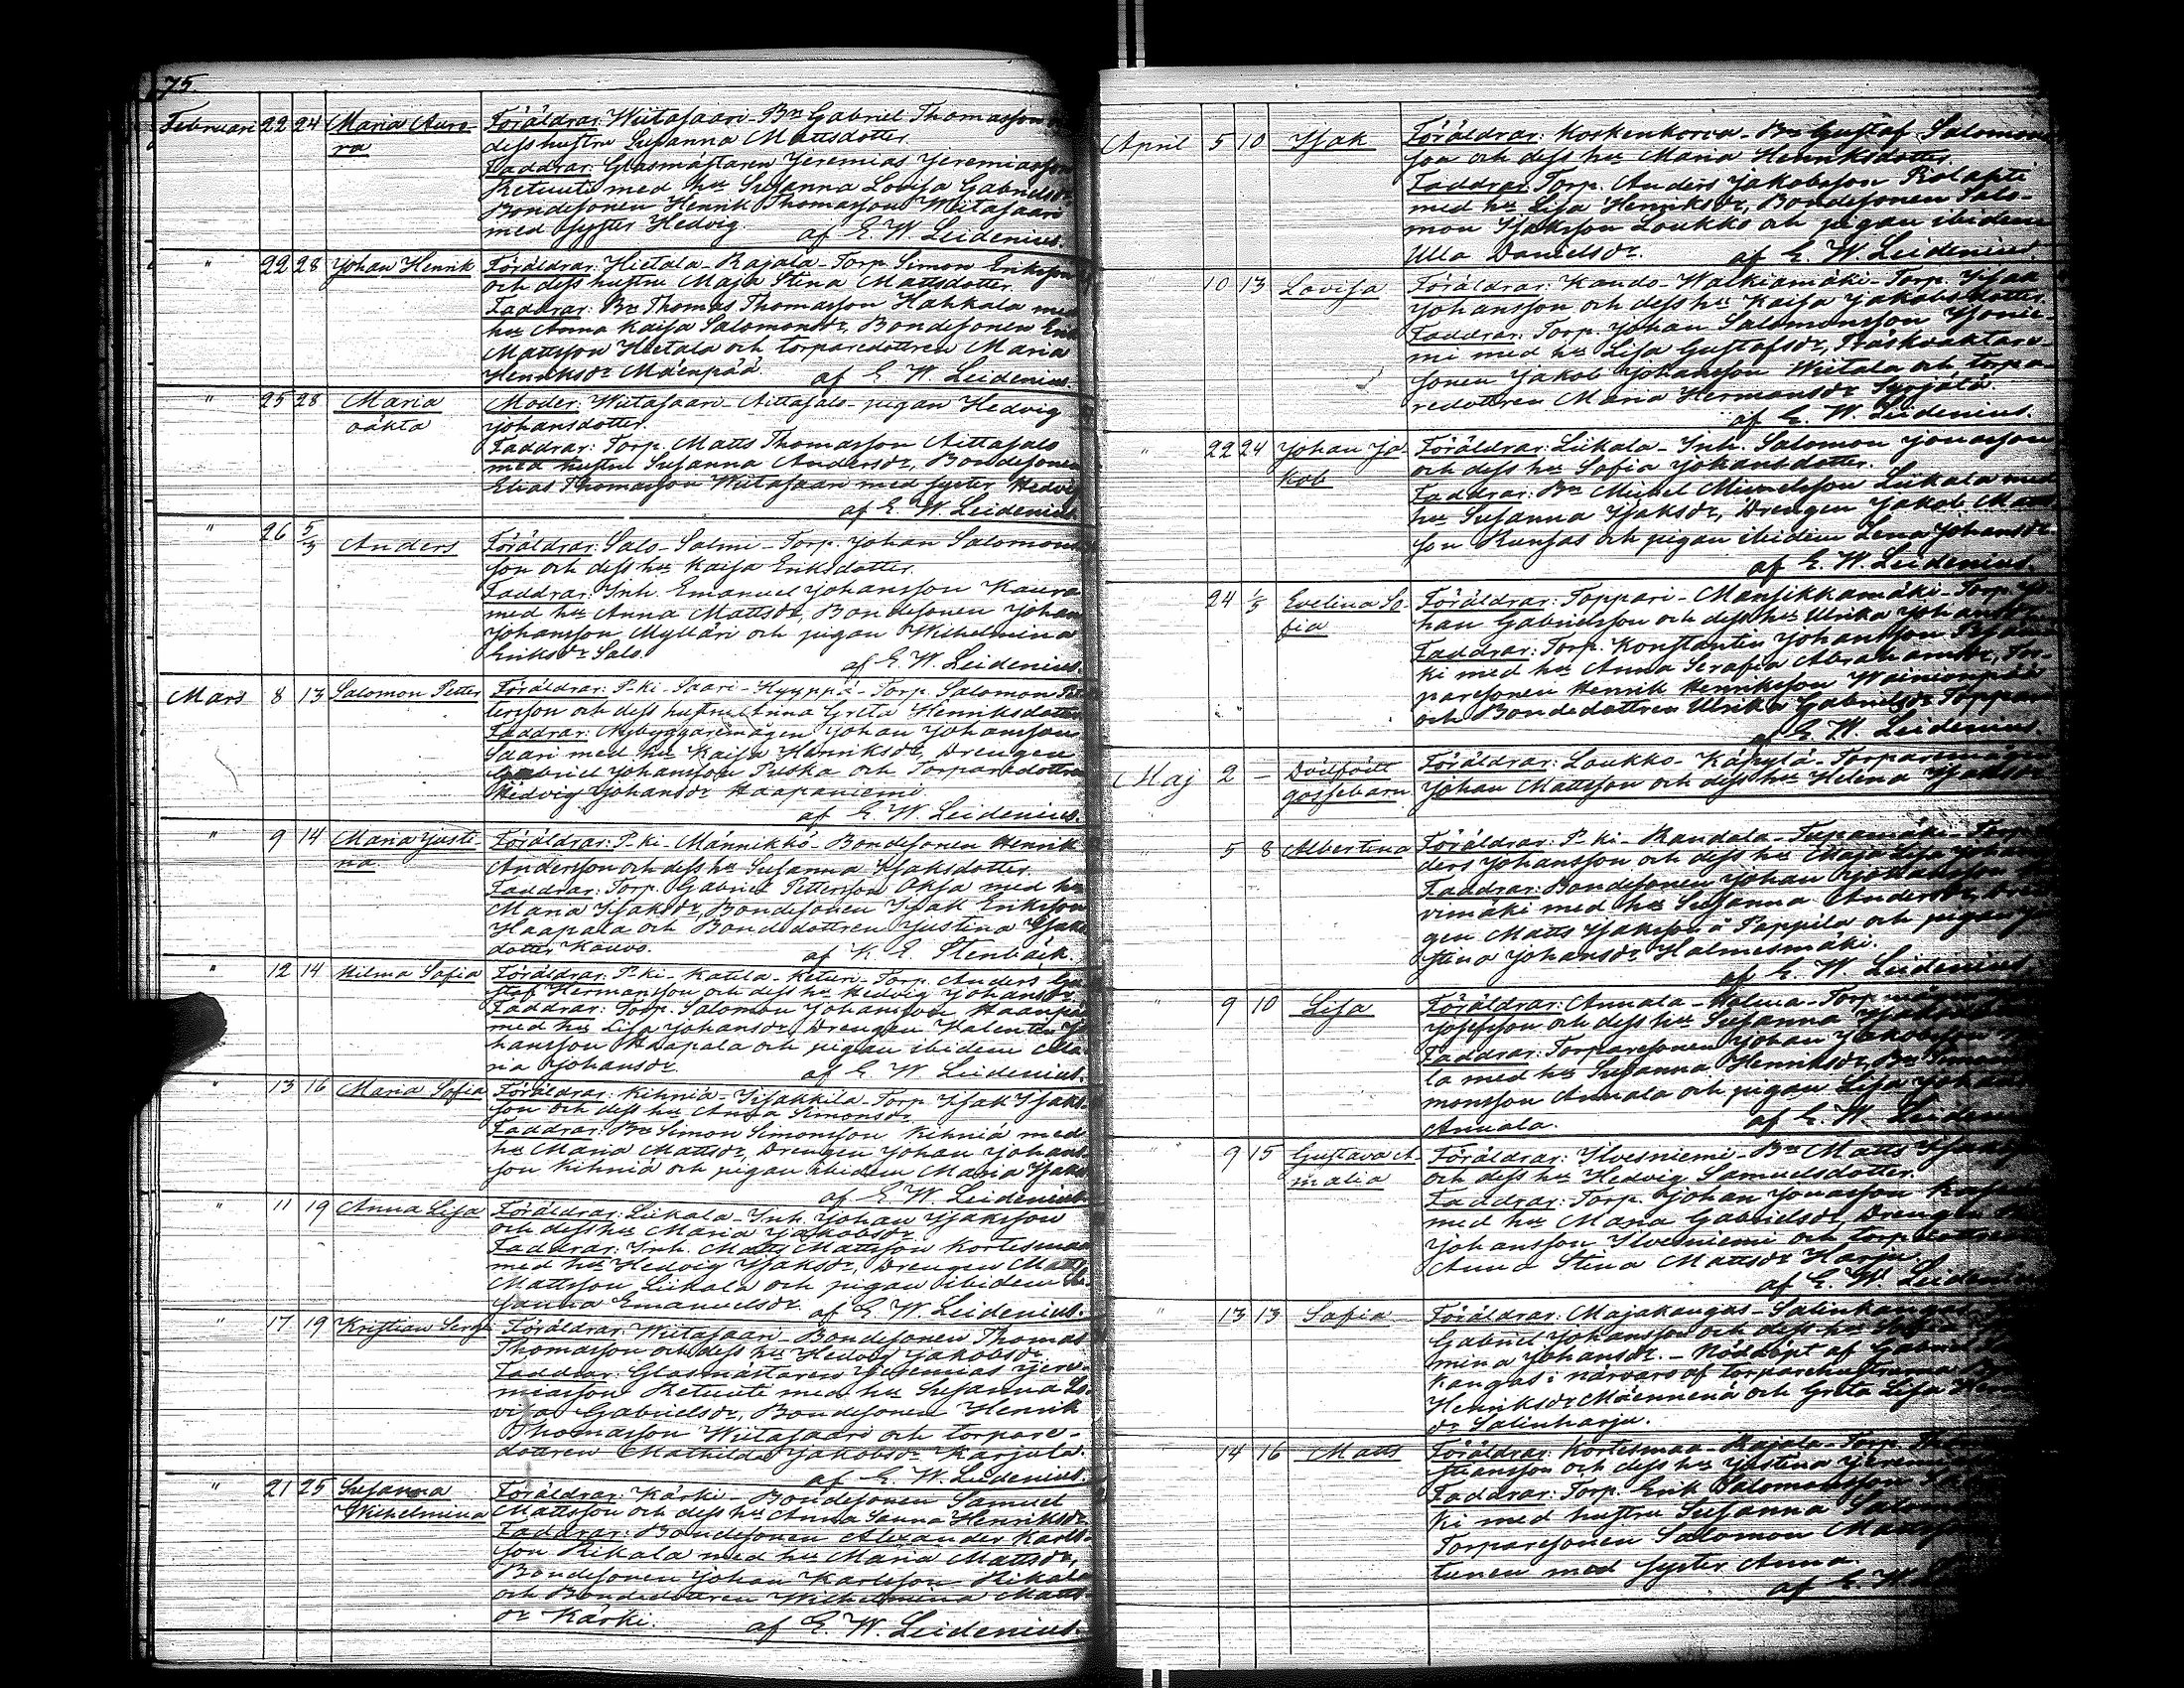 75.
Februari 22 24 Maria Auro- Föräldrar: Wiitasaari - Bn Gabriel Thomasson
ra dess hustru Susanna Mattsdotter.
Faddrar: Glasmästaren Jeremias Jeremiasson
Retuuti med hu Susanna Lovisa Gabrielsdr,
Bondesonen Henrik Thomasson Wiitasaari
med syster Hedvig. af E. W. Leidenius.
" 22 28 Johan Henrik Föräldrar: Hietala - Rajala - Torp. Simon Eriksson
och dess hustru Maja Stina Mattsdotter.
Faddrar: Bn Thomas Thomasson Hahkala med
hu Anna Kaisa Salomonsdr, Bondesonen
Mattsson Hietala och torparedottren Maria
Henriksdr Mäenpää. af E. W. Leidenius.
" 25 28 Maria Moder: Wiitasaari - Aittasalo - pigan Hedvig
oäkta Johansdotter.
Faddrar: Torp. Matts Thomasson Aittasalo
med hustru Susanna Andersdr, Bondesonen
Elias Thomasson Wiitasaari med syster Hedvig
af E. W. Leidenius.
" 26 5/3 Anders Föräldrar: Salo - Salmi - Torp. Johan Salomons-
son och dess hu Kaisa Eriksdotter.
Faddrar: Inh. Emanuel Johansson Kaura
med hu Anna Mattsdr, Bondesonen Johan
Johansson Mylläri och pigan Wilhelmina
Eriksdr Salo. af E. W. Leidenius.
Mars 8 13 Salomon Petter Föräldrar: P-ki - Saari - Kyyppä - Torp. Salomon Pet-
tersson och dess hustru Anna Greta Henriksdotter
Faddrar: Nybyggaremågen Johan Johansson
Saari med hu Kaisa Henriksdr, Drengen
Gabriel Johansson Puska och Torparedottren
Hedvig Johansdr Haapaniemi.
af E. W. Leidenius.
" 9 14 Maria Justi- Föräldrar: P-ki - Männikkö - Bondesonen Henrik
na Andersson och dess hu Susanna Isaksdotter.
Faddrar: Torp. Gabriel Pettersson Oksa med hu
Maria Isaksdr, Bondesonen Isak Eriksson
Haapala och Bondedottren Justina Isaks
dotter Kauvo. af K. E. Stenbäck.
" 12 14 Hilma Sofia Föräldrar: P-ki - Katila - Keturi - Torp. Anders Gu-
staf Hermansson och dess hu Hedvig Johansdr
Faddrar: Torp. Salomon Johansson
med hu Lisa Johansdr, Drengen Valentin Jo-
hansson Haapala och pigan ibidem Ma-
ria Johansdr. af E. W. Leidenius.
" 13 16 Maria Sofia Föräldrar: Kihniä - Iisakkila - Torp. Isak Isaks-
son och dess hu Anna Simonsdr
Faddrar: Bn Simon Simonsson Kihniä med
hu Maria Mattsdr, Drengen Johan Johans-
son Kihniä och pigan ibidem Maria Isaksdr
af E. W. Leidenius.
" 11 19 Anna Lisa Föräldrar: Liikala - Inh. Johan Isaksson
och dess hu Maria Jakobsdr.
Faddrar: Inh. Matts Mattsson Kortesmaa
med hu Hedvig Isaksdr, Drengen Matts
Mattsson Liikala och pigan ibidem Su-
sanna Emanuelsdr. af E. W. Leidenius.
" 17 19 Kristian Serg Föräldrar: Wiitasaari - Bondesonen Thomas
Thomasson och dess hu Hedvig Jakobsdr
Faddrar: Glasmästaren Jeremias Jere-
miasson Retuuti med hu Susanna Lo-
visa Gabrielsdr, Bondesonen Henrik
Thomasson Wiitasaari och torpare-
dottren Mathilda Jakobsdr Karjula.
af E. W. Leidenius.
" 21 25 Susanna Föräldrar: Kärki - Bondesonen Samuel
Wilhelmina Mattsson och dess hu Anna Sanna Henriksdr
Faddrar: Bondesonen Alexander Karls-
son Rikala med hu Maria Mattsdr,
Bondesonen Johan Karlsson Rikala
och Bondedottren Wilhelmina Matts-
dr Kärki. af E. W. Leidenius.
April 5 10 Isak Föräldrar: Koskenkorva - Bn Gustaf Salomons-
son och dess hu Maria Henriksdotter.
Faddrar: Torp. Anders Jakobsson
med hu Lisa Henriksdr, Bondesonen Salo-
mon Isaksson Loukko och pigan ibidem
Ulla Danielsdr. af E. W. Leidenius.
" 10 13 Lovisa Föräldrar: Kando - Walkiamäki - Torp. Isak
Johansson och dess hu Kaisa Jakobsdotter.
Faddrar: Torp. Johan Salomonsson Isonie-
mi med hu Lisa Gustafsdr,
sonen Jakob Johansson Wiitala och torpa-
redottren Maria Hermansdr Syrjälä.
af E. W. Leidenius.
" 22 24 Johan Ja- Föräldrar: Liikala - Inh. Salomon Jonasson
kob och dess hu Sofia Johansdotter.
Faddrar: Bn Mickel Mickelsson Liikala med
hu Susanna Isaksdr, Drengen Jakob Matts-
son Kunsas och pigan ibidem Lena Johansdr
af E. W. Leidenius.
24 1/5 Evelina So- Föräldrar: Toppari - Mansikkamäki - Torp. Jo-
fia han Gabrielsson och dess hu Ulrika Johansdr
Faddrar: Torp. Konstantin Johansson
ki med hu Anna Serafia Abrahamsdr, Tor-
paresonen Henrik Henriksson Wainionpää
och Bondedottren Ulrika Gabrielsdr Toppari
af E. W. Leidenius.
Maj 2 - Dödfödt Föräldrar: Loukko - Käpylä - Torparemågen
gossebarn Johan Mattsson och dess hu Helena Isaksdr
" 5 8 Albertina Föräldrar: P-ki - Kandola - Tupamäki - Torp.
ders Johansson och dess hu Maja Lisa Johans
Faddrar: Bondesonen Johan Johansson
vimäki med hu Susanna Andersdr, Dren-
gen Matts Isaksson å Pappila och pigan
stina Johansdr Holmesmäki.
af E. W. Leidenius
" 9 10 Lisa Föräldrar: Annala - Holma - Torp
Josefsson och dess hu Susanna
Faddrar: Torparesonen Johan Jakobsson
la med hu Susanna Henriksdr, Bn
monsson Annala och pigan Lisa Johans
Annala. af E. W. Leidenius
" 9 15 Gustava A- Föräldrar: Ilvesniemi - Bn Matts
malia och dess hu Hedvig Samuelsdotter.
Faddrar: Torp. Johan Jonasson
med hu Maria Gabrielsdr, Drengen
Johansson Ilvesniemi och torparedottren
Anna Stina Mattsdr Harju.
af E. W. Leidenius
" 13 13 Sofia Föräldrar: Majakangas - Salinkangas
Gabriel Johansson och dess hu
mina Johansdr. - Nöddöpt af Gabriel
kangas i närvaro af torparehustrurna
Henriksdr Mäenmenä och Greta Lisa
dr Salinharju.
14 16 Matts Föräldrar: Kortesmaa - Rajala - Torp.
hansson och dess hu Justina
Faddrar: Torp. Erik Salomonsson
ki med hustru Susanna Salomons
Torparesonen Salomon Matts
tunen med syster Anna.
af E. W.